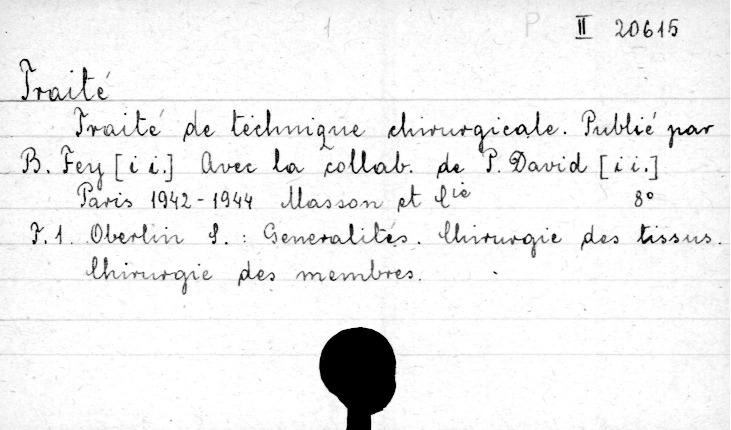 1 P II 20615
Traité
Traité de téchnique chirurgicale. Publié par
B. Fey [i i.] Avec la collab. de P. David [i i.]
Paris 1942-1944 Masson et Cie 8°
T.1. Oberlin S. : Generalités. Chirurgie des tissus.
Chirurgie des membres.